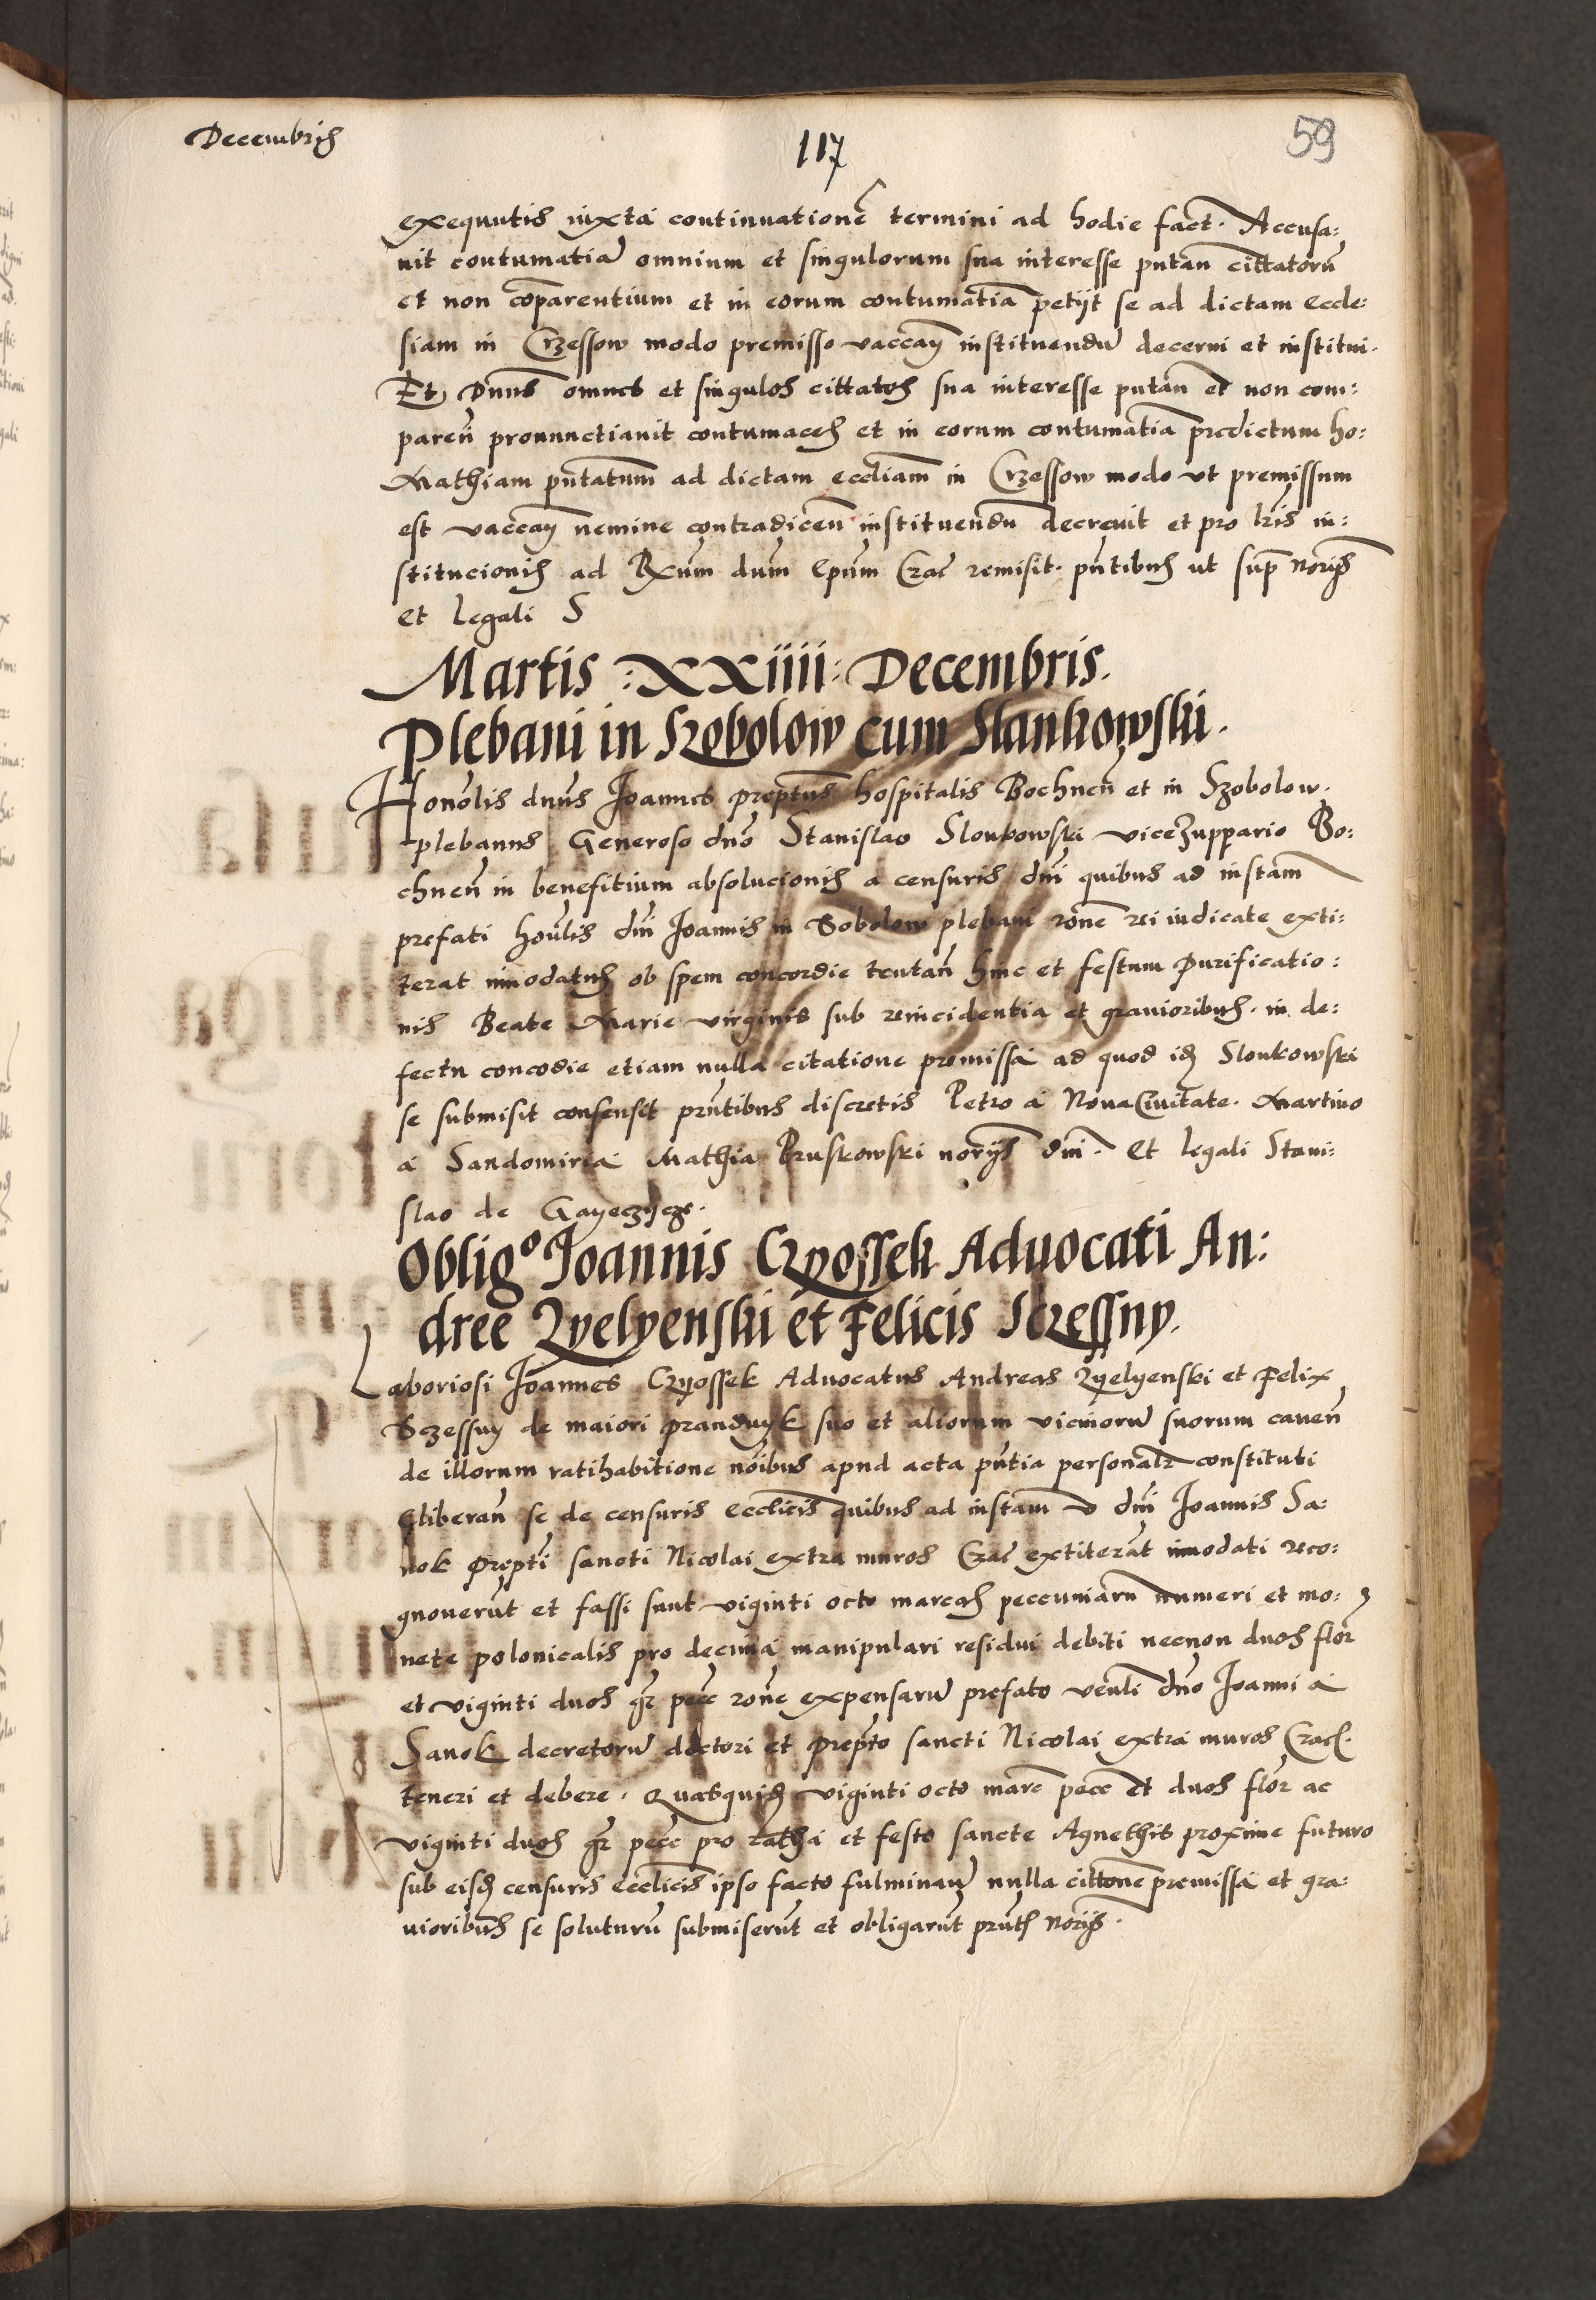 Decembris
117
59
exequutis iuxta continuationē termini ad hodie fact. Accusa:
uit contumatiā omnium et singulorum sua interesse putan̄ cittatorū
et non cōparentium et in eorum contumatia petijt se ad dictam eccle:
siam in Crzessow modo premisso vaccan̄ instituendū decerni et institui.
Et Dnus omnes et singulos cittatos sua interesse putan̄ et non com:
paren̄ pronunctiauit contumaces et in eorum contumatiā predictum ho:
Mathiam pn̄tatum ad dictam ecclīam in Crzessow modo vt premissum
est vaccan̄ nemine contradicen̄ instituendū decreuit et pro lr̄is in:
stitucionis ad Rx̄um dn̄um Ep̄um Crac̄ remisit. pn̄tibus ut supr̄ Norijs
et legali S
Martis :XXiiii: Decembris.
Plebani in Szobolow cum Slankowski.
Honōlis dnūs Joannes prepn̄tus hospitalis Bochnen̄ et in Szobolow.
plebanus Generoso dnō Stanislao Slonkowski vicezuppario Bo:
chnen̄ in benefitium absolucionis a censuris dn̄i quibus ad instam̄
prefati hon̄lis dn̄i Joannis in Sobolow plebani rōne rei iudicate exti:
terat innodatus ob spem concordie tentan̄ hinc et festum Purificatio:
nis Beate Marie virginis sub reincidentia et grauioribus. in de:
fectu concodie etiam nulla citatione premissa ad quod idē Slonkowski
se submisit consensit prn̄tibus discretis Petro a Noua Ciuitate. Martino
a Sandomiria Mathia Pruskowski norijs dn̄i. Et legali Stani:
slao de Gayeczycze.
Oblig° Joannis Czyossek Aduocati An:
dree Zyelyenski et Felicis Sczessny.
Laboriosi Joannes Czyossek Aduocatus Andreas Zyelyenski et Felix
Sczessny de maiori prandnyk suo et aliorum vicinorū suorum cauen̄
de illorum ratihabitione nōibus apud acta pn̄tia personalr̄ constituti
Eliberan̄ se de censuris eccl̄icis quibus ad instam̄ v dn̄i Joannis Sa:
nok prepti sancti Nicolai extra muros Crac̄ extiterāt innodati reco:
gnouerūt et fassi sunt viginti octo marcas peccuniarū numeri et mo:
nete polonicalis pro decima manipulari residui debiti necnon duos flor̄
et viginti duos gr̄ pecc̄ rōne expensarū prefato ven̄li dn̄o Joanni a
Sanok decretorū doctori et prepto sancti Nicolai extra muros Crac̄.
teneri et debere. Quasquidē viginti octo marc̄ pecc̄ et duos flor̄ ac
viginti duos gr̄ pecc̄ pro ratha et festo sancte Agnethis proxime futuro
sub eisdē censuris eccl̄icis ipso facto fulminan̄ nulla cittōne premissa et gra:
uioribus se soluturū submiserūt et obligarūt prn̄t Norijs.